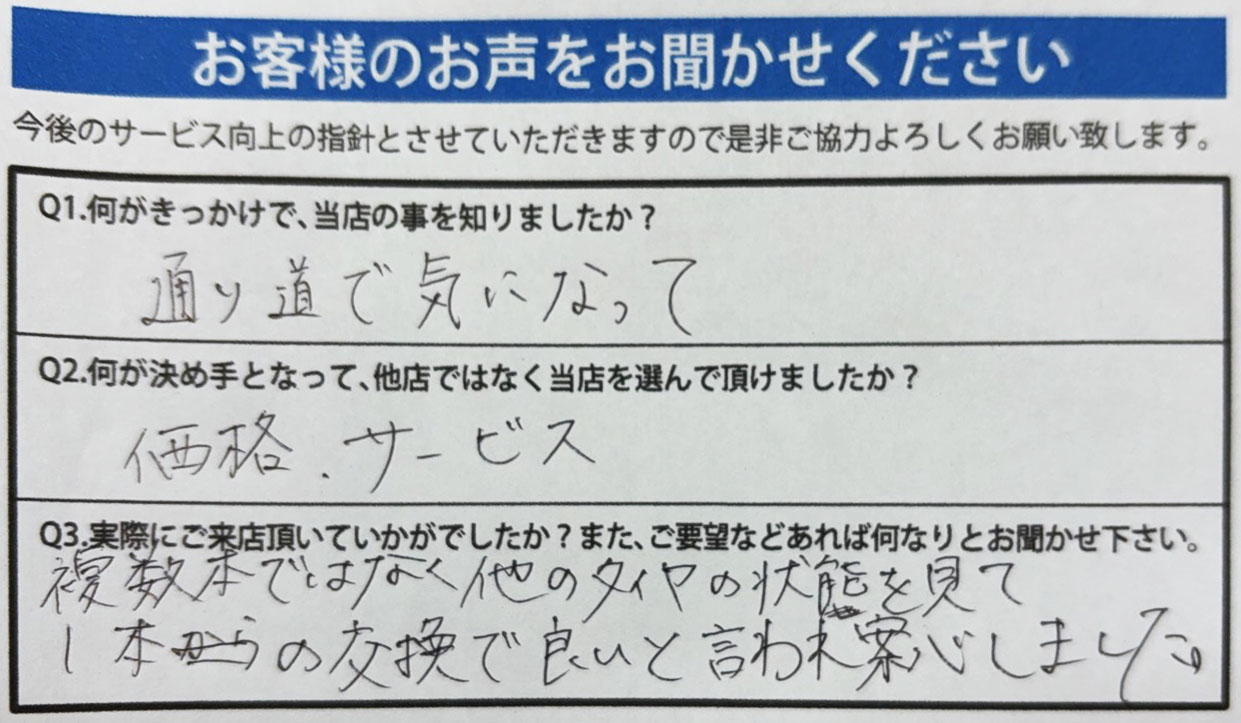 お客様のお声をお聞かせください
今後のサービス向上の指針とさせていただきますので是非ご協力よろしくお願い致します。
Q1.何がきっかけで、当店の事を知りましたか？
通り道で気になって
Q2.何が決め手となって、他店ではなく当店を選んで頂けましたか？
価格.サービス
Q3.実際にご来店頂いていかがでしたか？また、ご要望などあれば何なりとお聞かせ下さい。
複数本ではなく他のタイヤの状態を見て
1本からの交換で良いと言われ案心しました。